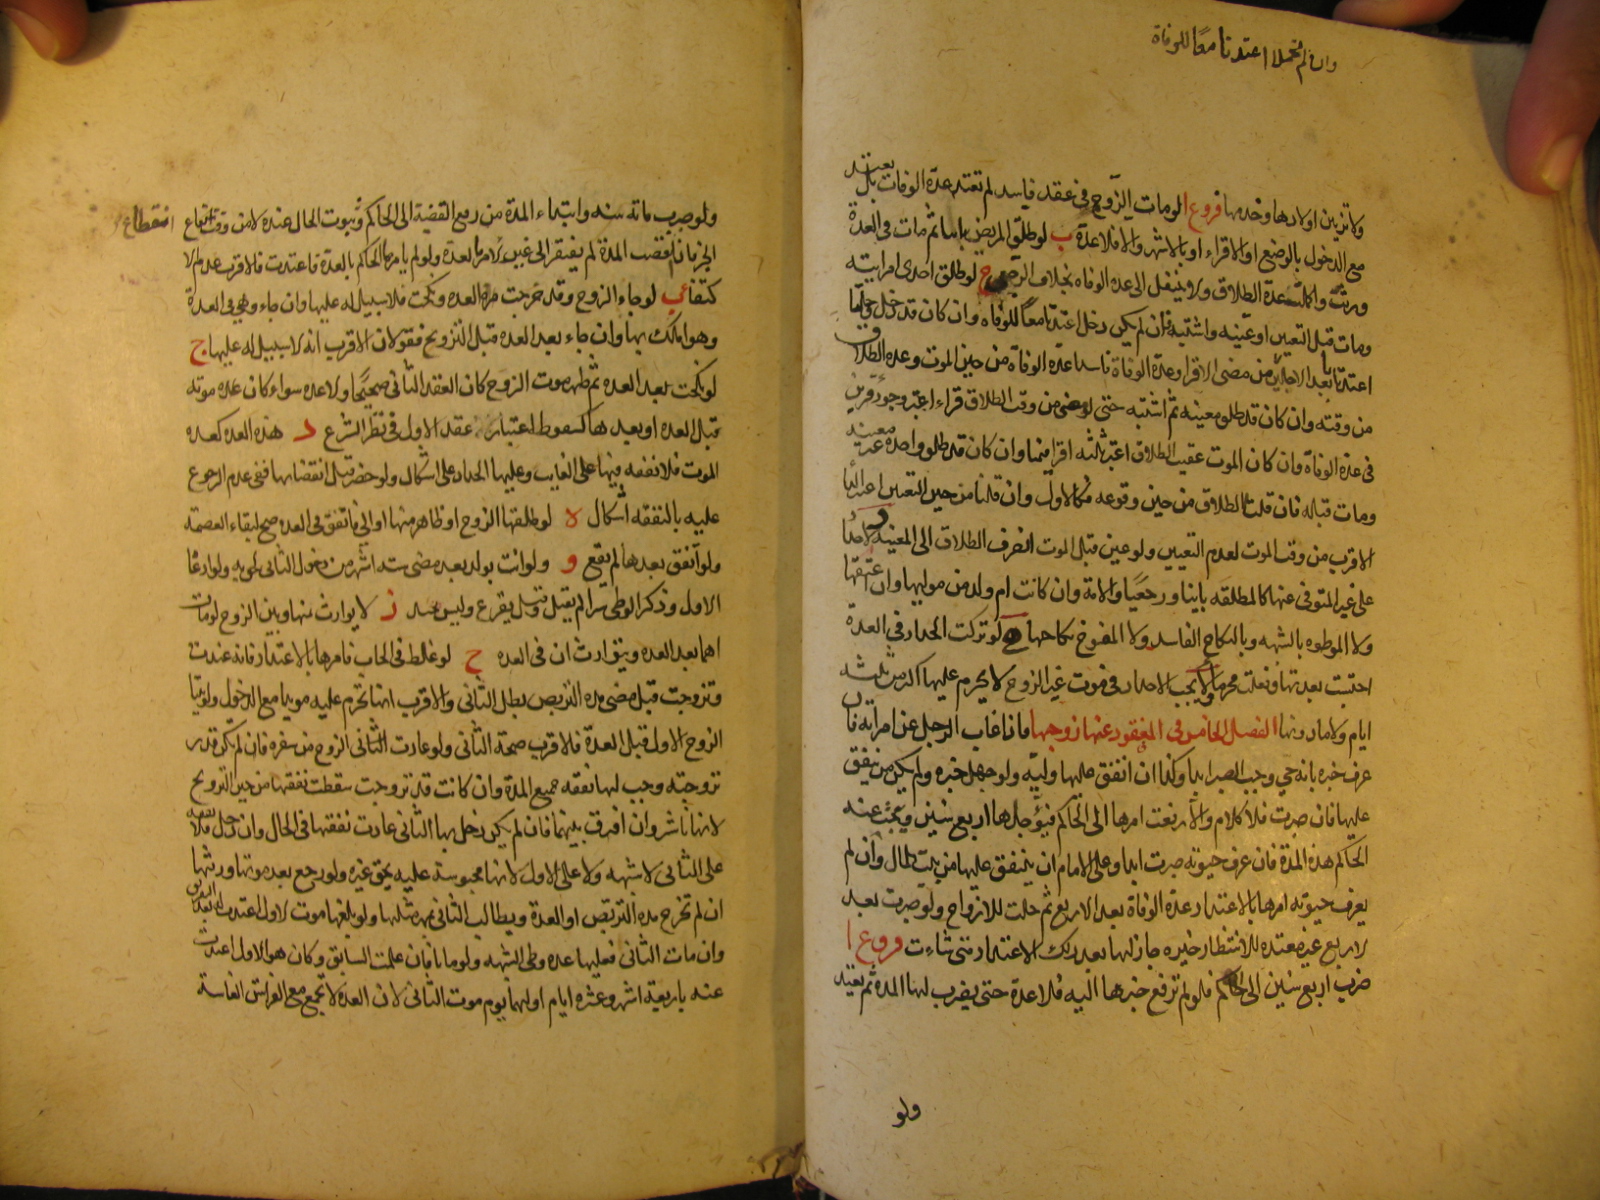 وان لم تحملا اعتدتا معًا للوفاة
ولا تزيين اولادها وخدمها فروع ا لو مات الزوج في عقد فاسد لم تعتد عدة الوفات بل تعتد
مع الدخول بالوضع او الاقراء او بالاشهر والا فلا عدة ب لو طلق المريض باينا ثم مات في العدة
ورثت واكملت عدة الطلاق ولا ينتقل الى عدة الوفاة بخلاف الرجعي ج لو طلق احدى امراتيه
ومات قبل التعيين او عينه واشتبه فان لم يكن دخل اعتدتا معًا للوفاة وان كان قد دخل
اعتدتا بابعد الاجلين من مضى الاقراء وعدة الوفاة عدة الوفاة من حين الموت وعدة الطلاق
من وقته وان كان قد طلق معينه ثم اشتبه حتى لو مضى من وقت الطلاق قراء اعتبر وجود قرين
في عدة الوفاة وان كان الموت عقيب الطلاق اعتبر ثلثه اقراء فيها وان كان قد طلق واحدة غير معينه
ومات قبله فان قلنا بالطلاق من حين وقوعه فكالاول وان قلنا من حين التعيين اعتبرنا
الاقرب من وقت الموت لعدم التعيين ولو عين قبل الموت انصرف الطلاق الى المعينه د لا حداد
على غير المتوفى عنها كالمطلقه باينا ورجعيًا والامة وان كانت ام ولد من مولاها وان اعتقها
ولا الموطوه بالشبهه وبالنكاح الفاسد ولا المفسوخ نكاحها لو تركت الحداد في العدة
احتسبت بعدتها وفعلت محرما ولا يجب الاحداد في موت غير الزوج لا يحرم عليها اكثر من ثلثه
ايام ولا ما دونها الفصل الخامس في المفقود عنها زوجها ماذا غاب الرجل عن امراته فان
عرف خبره بانه حي وجب الصبر ابدا وكذا ان انفق عليها وليه ولو جهل خبره ولم يكن من ينفق
عليها فان صبرت فلا كلام والا رفعت امرها الى الحاكم فيؤجلها اربع سنين ويبحث عنه
الحاكم هذه المدة فان عرف حيوته صبرت ابدا وعلى الامام ان ينفق عليها من بيت المال وان لم
يعرف حيوته امرها بالاعتداد عدة الوفاة بعد الاربع ثم حلت للازواج ولو صبرت بعد
لاربع غير معتدة للانتظار خبره جاز لها بعد ذلك الاعتداد متى شاءت فروع ا
ضرب اربع سنين الى الحاكم فلو لم ترفع خبرها اليه فلا عدة حتى يضرب لها المدة ثم تعتد
ولو
ولو صبرت مائة سنة وابتداء المدة من رفع القضية الى الحاكم وثبوت الحال عنده لا من وقت انقطاع
انقطاع
الخبر فاذا انقضت المدة لم يفتقر الى غيره لامرها لعدة ولو لم يامرها الحاكم بالعدة فاعتدت فالاقرب عدم الا
كتفا ب لو جاء الزوج وقد خرجت من العده ونكحت فلا سبيل له عليها وان جاء وهي في العدة
وهو املك بها وان جاء بعد العده قبل التزويج فقولان الاقرب انه لا سبيل له عليها ج
لو نكحت بعد العده ثم ظهر موت الزوج كان العقد الثاني صحيحًا ولا عده سواء كان عده موته
قبل العده او بعدها لسقوط اعتبار عقد الاول في نظر الشرع د هذه العده كعده
الموت فلا نفقه فيها على الغايب وعليها الحداد على اشكال ولو حضر قبل انقضاءها ففي عدم الرجوع
عليه بالنفقه اشكال ه لو طلقها الزوج او ظاهر منها او الى فاتفق في العده صح لبقاء العصمة
ولو اتفق بعدها لم يقع و ولو اتت بولد بعد مضى ستة اشهر من دخول الثاني لحق به ولو ادعا
الاول وذكر الوطى سرا لم يقبل وقيل يقرع وليس بجيد ز لا يوارث بينها وبين الزوج لو مات
احدهما بعد العده ويتوارثان في العده ح لو غلط في الحساب فامرها بالاعتداد فاعتدت
وتزوجت قبل مضى مدة التربص بطل الثاني والاقرب انها تحرم عليه موبدا مع الدخول ولو تبين موت
الزوج الاول قبل العدة فالاقرب صحة الثاني ولو عادت الثاني الزوج من سفره فان لم تكن قد
تزوجته وجب لها نفقه جميع المدة وان كانت قد تزوجت سقطت نفقتها من حين التزويج
لانها ناشز وان افترق بينهما فان لم يكن دخل بها الثاني عادت نفقتها في الحال وان دخل فلا نفقة
على الثاني لاشبهه ولا على الاول لانها محبوسة عليه بحق غيره ولو رجع بعد موتها ورثها
ان لم تخرج مدة التربص او العدة ويطالب الثاني بمهر مثلها ولو بلغها موت الاول اعتدت
وان مات الثاني فعليها عده وطى الشبهه ولو ماتا فان علمت السابق وكان هو الاول اعتدت
عنه باربعة اشهر وعشرة ايام اولها يوم موت الثاني لان العدة لا تجتمع مع الفراش الفاسد